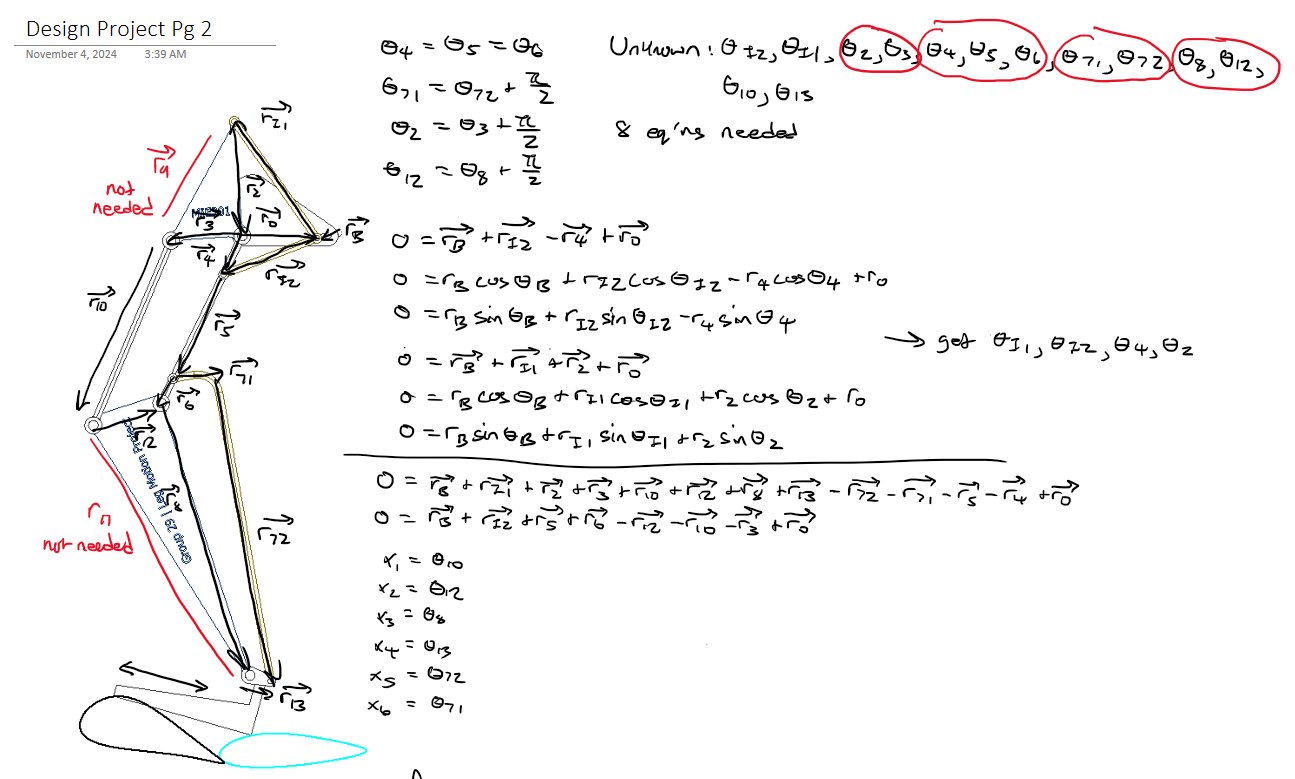 Design Project Pg 2
November 4, 2024 3:39 AM
θ4 = θ5 = θ6
θ71 = θ72 + π/2
θ2 = θ3 + π/2
θ12 = θ8 + π/2
Unknown: θI2, θI1, θ2, θ3, θ4, θ5, θ6, θ71, θ72, θ8, θ12,
θ10, θ13
8 eq'ns needed
rI1
r9
not
needed
r2
r3
r0
rB
r4
r82
r10
r5
r71
r6
r12
r8
Group 29 | Leg Motion Project
r11
not needed
r72
r13
0 = rB + rI2 - r4 + r0
0 = rB cosθB + rI2 cosθI2 - r4 cosθ4 + r0
0 = rB sinθB + rI2 sinθI2 - r4 sinθ4
0 = rB + rI1 + r2 + r0
0 = rB cosθB + rI1 cosθI1 + r2 cosθ2 + r0
0 = rB sinθB + rI1 sinθI1 + r2 sinθ2
→ get θI1, θI2, θ4, θ2
0 = rB + rI1 + r2 + r3 + r10 + r12 + r8 + r13 - r72 - r71 - r5 - r4 + r0
0 = rB + rI2 + r5 + r6 - r12 - r10 - r3 + r0
x1 = θ10
x2 = θ12
x3 = θ8
x4 = θ13
x5 = θ72
x6 = θ71